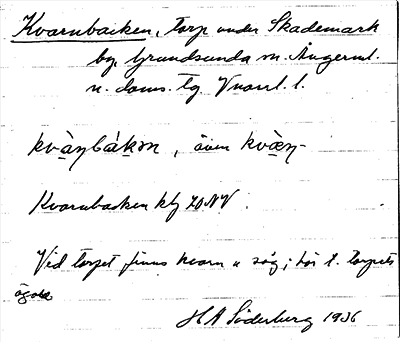 Kvarnbacken, Torp under Skademark
by, Grundsunda sn. Ångerml.
n. doms. tg Vnorrl. l.
kvàṇbákən, även kvæ̀ṇ-
Kvarnbacken kbl 70 NV.
Vid torpet finns kvarn o såg; hör t. torpets
ägor
H A Söderberg 1936